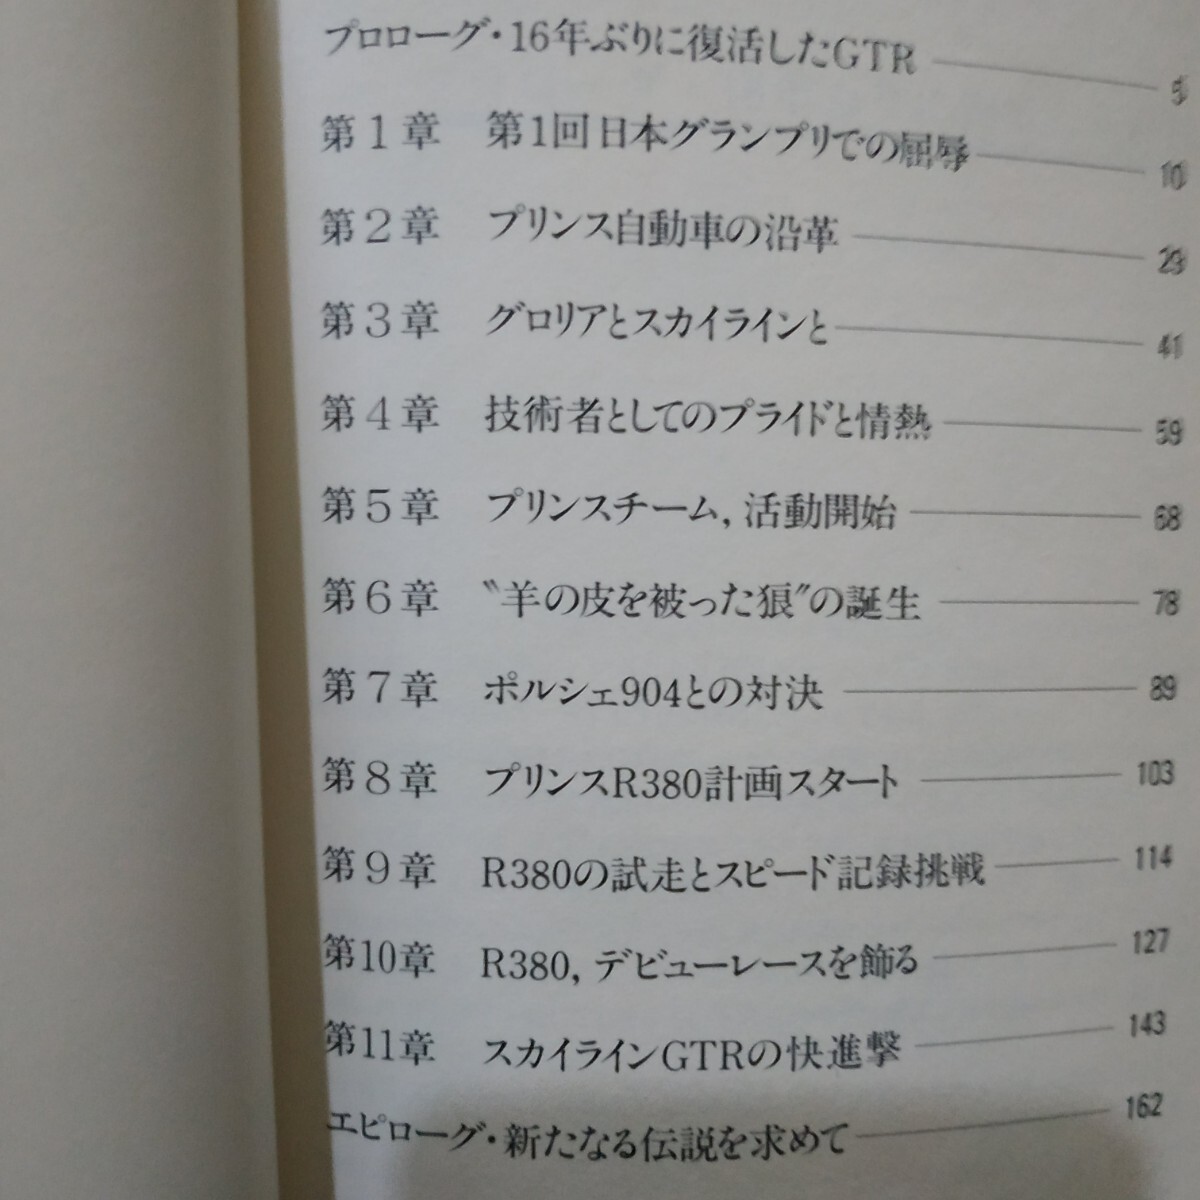 プロローグ・16年ぶりに復活したGTR 5
第1章 第1回日本グランプリでの屈辱 10
第2章 プリンス自動車の沿革 29
第3章 グロリアとスカイラインと 41
第4章 技術者としてのプライドと情熱 59
第5章 プリンスチーム，活動開始 68
第6章 〝羊の皮を被った狼〟の誕生 78
第7章 ポルシェ904との対決 89
第8章 プリンスR380計画スタート 103
第9章 R380の試走とスピード記録挑戦 114
第10章 R380，デビューレースを飾る 127
第11章 スカイラインGTRの快進撃 143
エピローグ・新たなる伝説を求めて 162